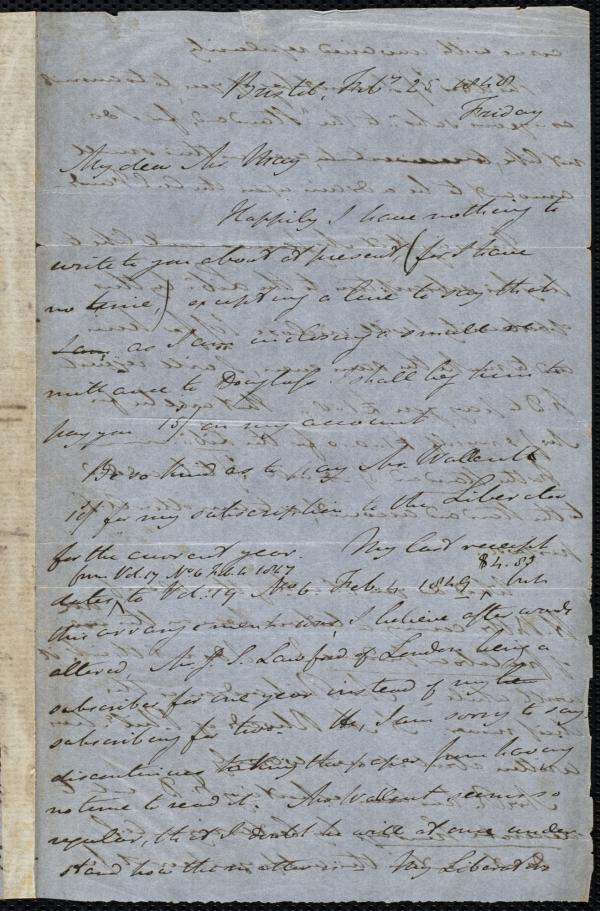 Bristol, Feby 25 1848
Friday
My dear Mr. Wray
Happily I have nothing to
write to you about at present (for I have
no time,) excepting a line to say that
as I am inclosing a small re-
mittance to Douglass I shall beg him to
pay you 15/ on my account
Be so kind as to pay Mr. Wallcutt
for my subscription to the Liberator
for the current year. My last receipt
from Vol. 17 No 6 Feb. 4 1847 $4.83
dates to Vol: 19 No 6. Feb. 4 1849, but
this arrangement was, I believe afterwards
altered, Mr. J. S. Lawford of London being a
subscriber for one year instead of my
subscribing for two. He, I am sorry to say
discontinues taking the paper from having
no time to read it. Mr. Wallcut seems so
regular, that I doubt he will at once under-
stand how the matter is. My Liberators